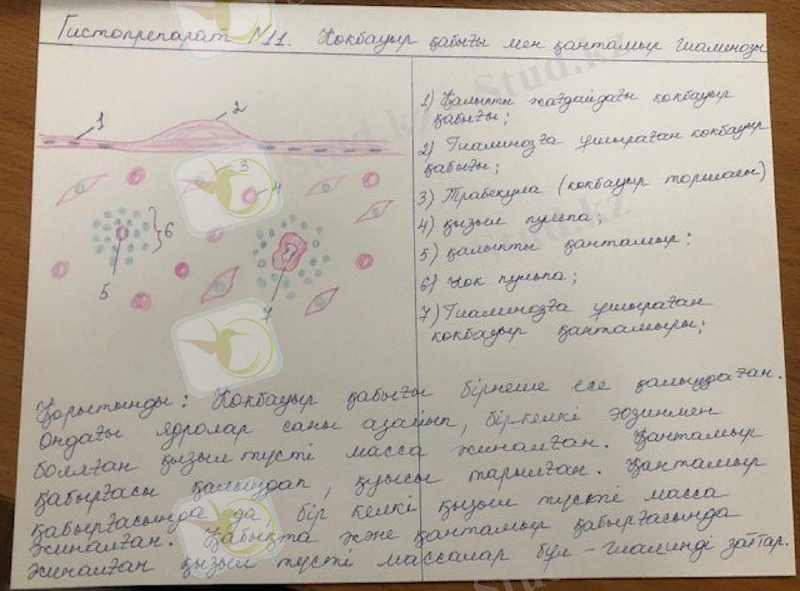 Гистопрепарат №11. Көкбауыр қабығы мен қантамыр гиалинозы
1) Қалыпты жағдайдағы көкбауыр
қабығы;
2) Гиалинозға ұшыраған көкбауыр
қабығы;
3) Трабекула (көкбауыр торшасы)
4) қызыл пульпа;
5) қалыпты қантамыр;
6) Көк пульпа;
7) Гиалинозға ұшыраған
көкбауыр қантамыры;
1
2
3
4
6
5
7
Қорытынды: Көкбауыр қабығы бірнеше есе қалыңдаған.
Ондағы ядролар саны азайып, біркелкі эозинмен
боялған қызыл түсті масса жиналған. Қантамыр
қабырғасы қалыңдап, қуысы тарылған. Қантамыр
қабырғасында да, бір келкі қызыл түсті масса
жиналған. Қабықта және қантамыр қабырғасында
жиналған қызыл түсті массалар бұл - гиалинді заттар.
Stud.kz
Stud.kz
Stud.kz
Stud.kz
Stud.kz